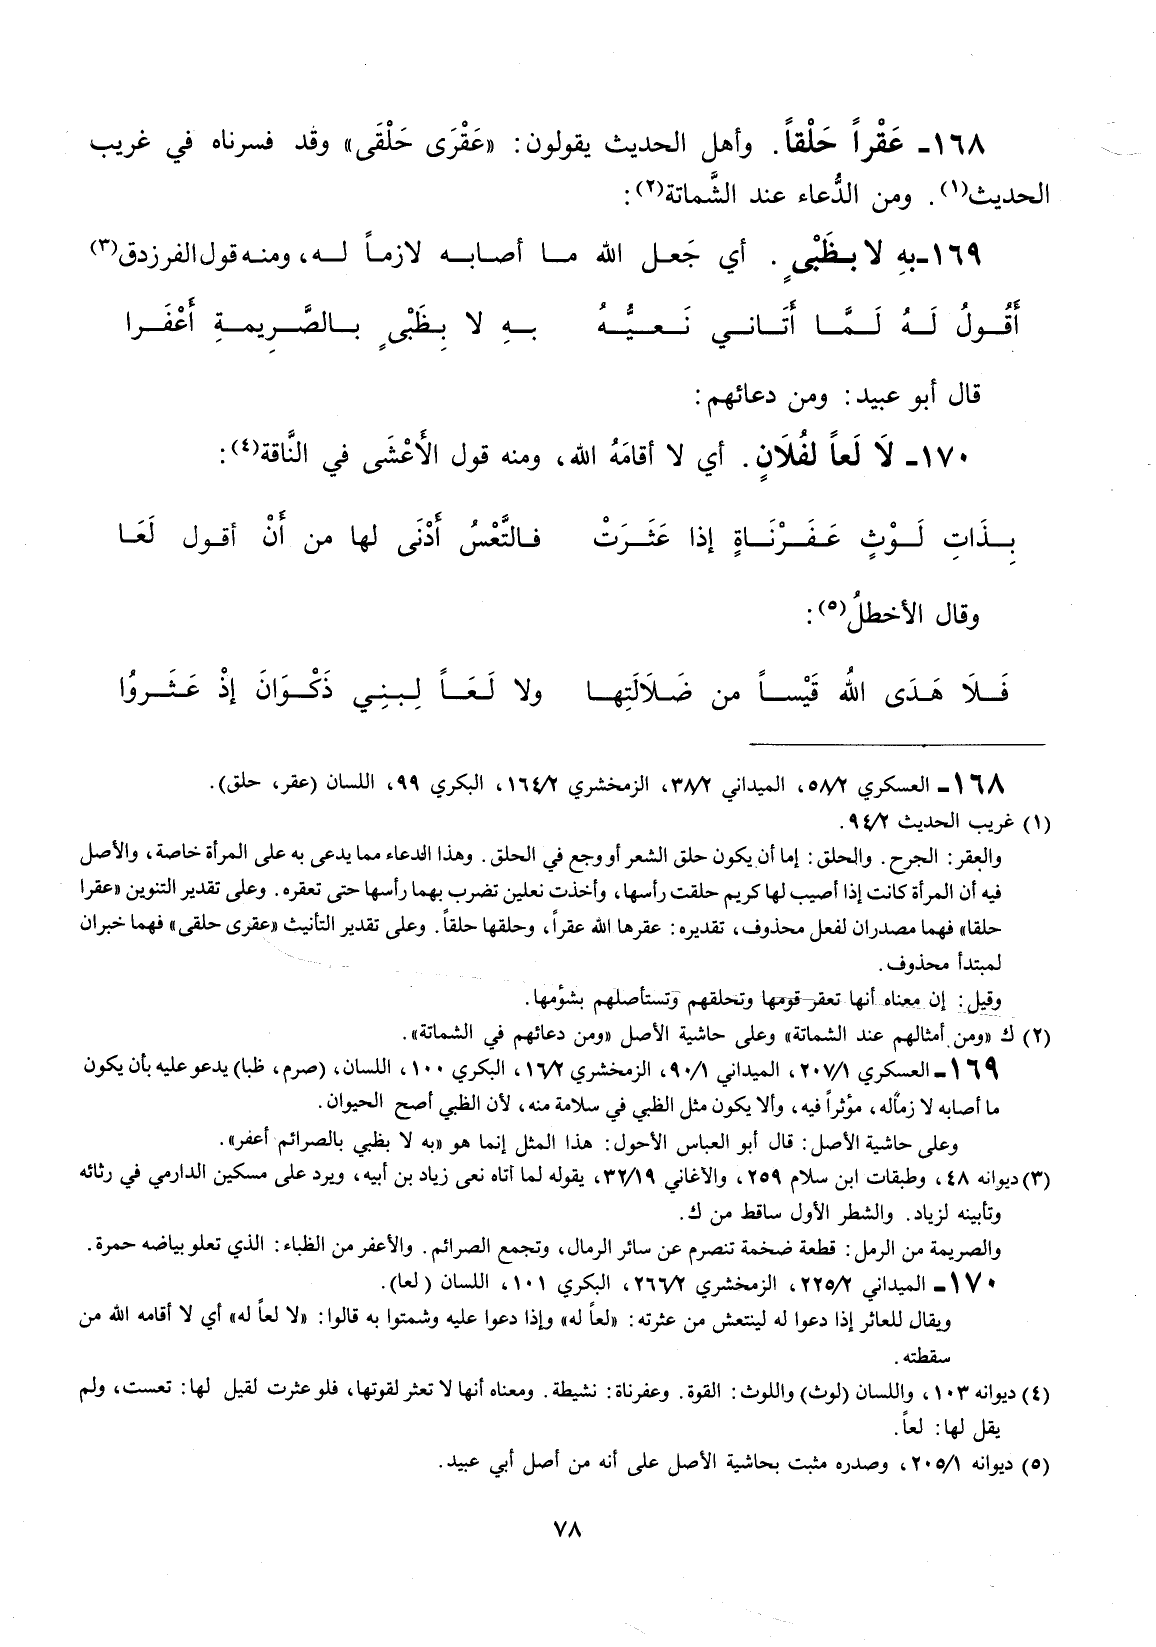 ١٦٨ـ عَقْراً حَلْقاً. وأهل الحديث يقولون: «عَقْرَى حَلْقَى» وقد فسرناه في غريب
الحديث(١). ومن الدُّعاء عند الشَّماتة(٢):
١٦٩ـ بهِ لا بِظَبْيٍ. أي جَعل الله ما أصابه لازماً له، ومنه قول الفرزدق(٣)
أَقُولُ لَهُ لَمَّا أَتَاني نَعيُّهُ بهِ لا بِظَبْيٍ بالصَّرِيمةِ أَعْفَرا
قال أبو عبيد: ومن دعائهم:
١٧٠ـ لاَ لَعاً لفُلاَنٍ. أي لا أقامَهُ الله، ومنه قول الأَعْشَى في النَّاقة(٤):
بِذَاتِ لَوْثٍ عَفَرْنَاةٍ إذا عَثَرَتْ فالتَّعْسُ أَدْنَى لها من أَنْ أقول لَعَا
وقال الأخطلُ(٥):
فَلاَ هَدَى اللهُ قَيْساً من ضَلاَلَتِها ولا لَعَاً لِبنِي ذَكْوَانَ إذْ عَثَروُا
١٦٨ـ العسكري ٥٨/٢، الميداني ٣٨/٢، الزمخشري ١٦٤/٢، البكري ٩٩، اللسان (عقر، حلق).
(١) غريب الحديث ٩٤/٢.
والعقر: الجرح. والحلق: إما أن يكون حلق الشعر أو وجع في الحلق. وهذا الدعاء مما يدعى به على المرأة خاصة، والأصل
فيه أن المرأة كانت إذا أصيب لها كريم حلقت رأسها، وأخذت نعلين تضرب بهما رأسها حتى تعقره. وعلى تقدير التنوين «عقرا
حلقا» فهما مصدران لفعل محذوف، تقديره: عقرها الله عقراً، وحلقها حلقاً. وعلى تقدير التأنيث «عقرى حلقى» فهما خبران
لمبتدأ محذوف.
وقيل: إن معناه أنها تعقر قومها وتحلقهم وتستأصلهم بشؤمها.
(٢) ك «ومن أمثالهم عند الشماتة» وعلى حاشية الأصل «ومن دعائهم في الشماتة».
١٦٩ـ العسكري ٢٠٧/١، الميداني ٩٠/١، الزمخشري ١٦/٢، البكري ١٠٠، اللسان، (صرم، ظبا) يدعو عليه بأن يكون
ما أصابه لا زماًله، مؤثراً فيه، وألا يكون مثل الظبي في سلامة منه، لأن الظبي أصح الحيوان.
وعلى حاشية الأصل: قال أبو العباس الأحول: هذا المثل إنما هو «به لا بظبي بالصرائم أعفر».
(٣) ديوانه ٤٨، وطبقات ابن سلام ٢٥٩، والأغاني ٣٢/١٩، يقوله لما أتاه نعى زياد بن أبيه، ويرد على مسكين الدارمي في رثائه
وتأبينه لزياد. والشطر الأول ساقط من ك.
والصريمة من الرمل: قطعة ضخمة تنصرم عن سائر الرمال، وتجمع الصرائم. والأعفر من الظباء: الذي تعلو بياضه حمرة.
١٧٠ـ الميداني ٢٢٥/٢، الزمخشري ٢٦٦/٢، البكري ١٠١، اللسان (لعا).
ويقال للعاثر إذا دعوا له لينتعش من عثرته: «لعاً له» وإذا دعوا عليه وشمتوا به قالوا: «لا لعاً له» أي لا أقامه الله من
سقطته.
(٤) ديوانه ١٠٣، واللسان (لوث) واللوث: القوة. وعفرناة: نشيطة. ومعناه أنها لا تعثر لقوتها، فلو عثرت لقيل لها: تعست، ولم
يقل لها: لعاً.
(٥) ديوانه ٢٠٥/١، وصدره مثبت بحاشية الأصل على أنه من أصل أبي عبيد.
٧٨